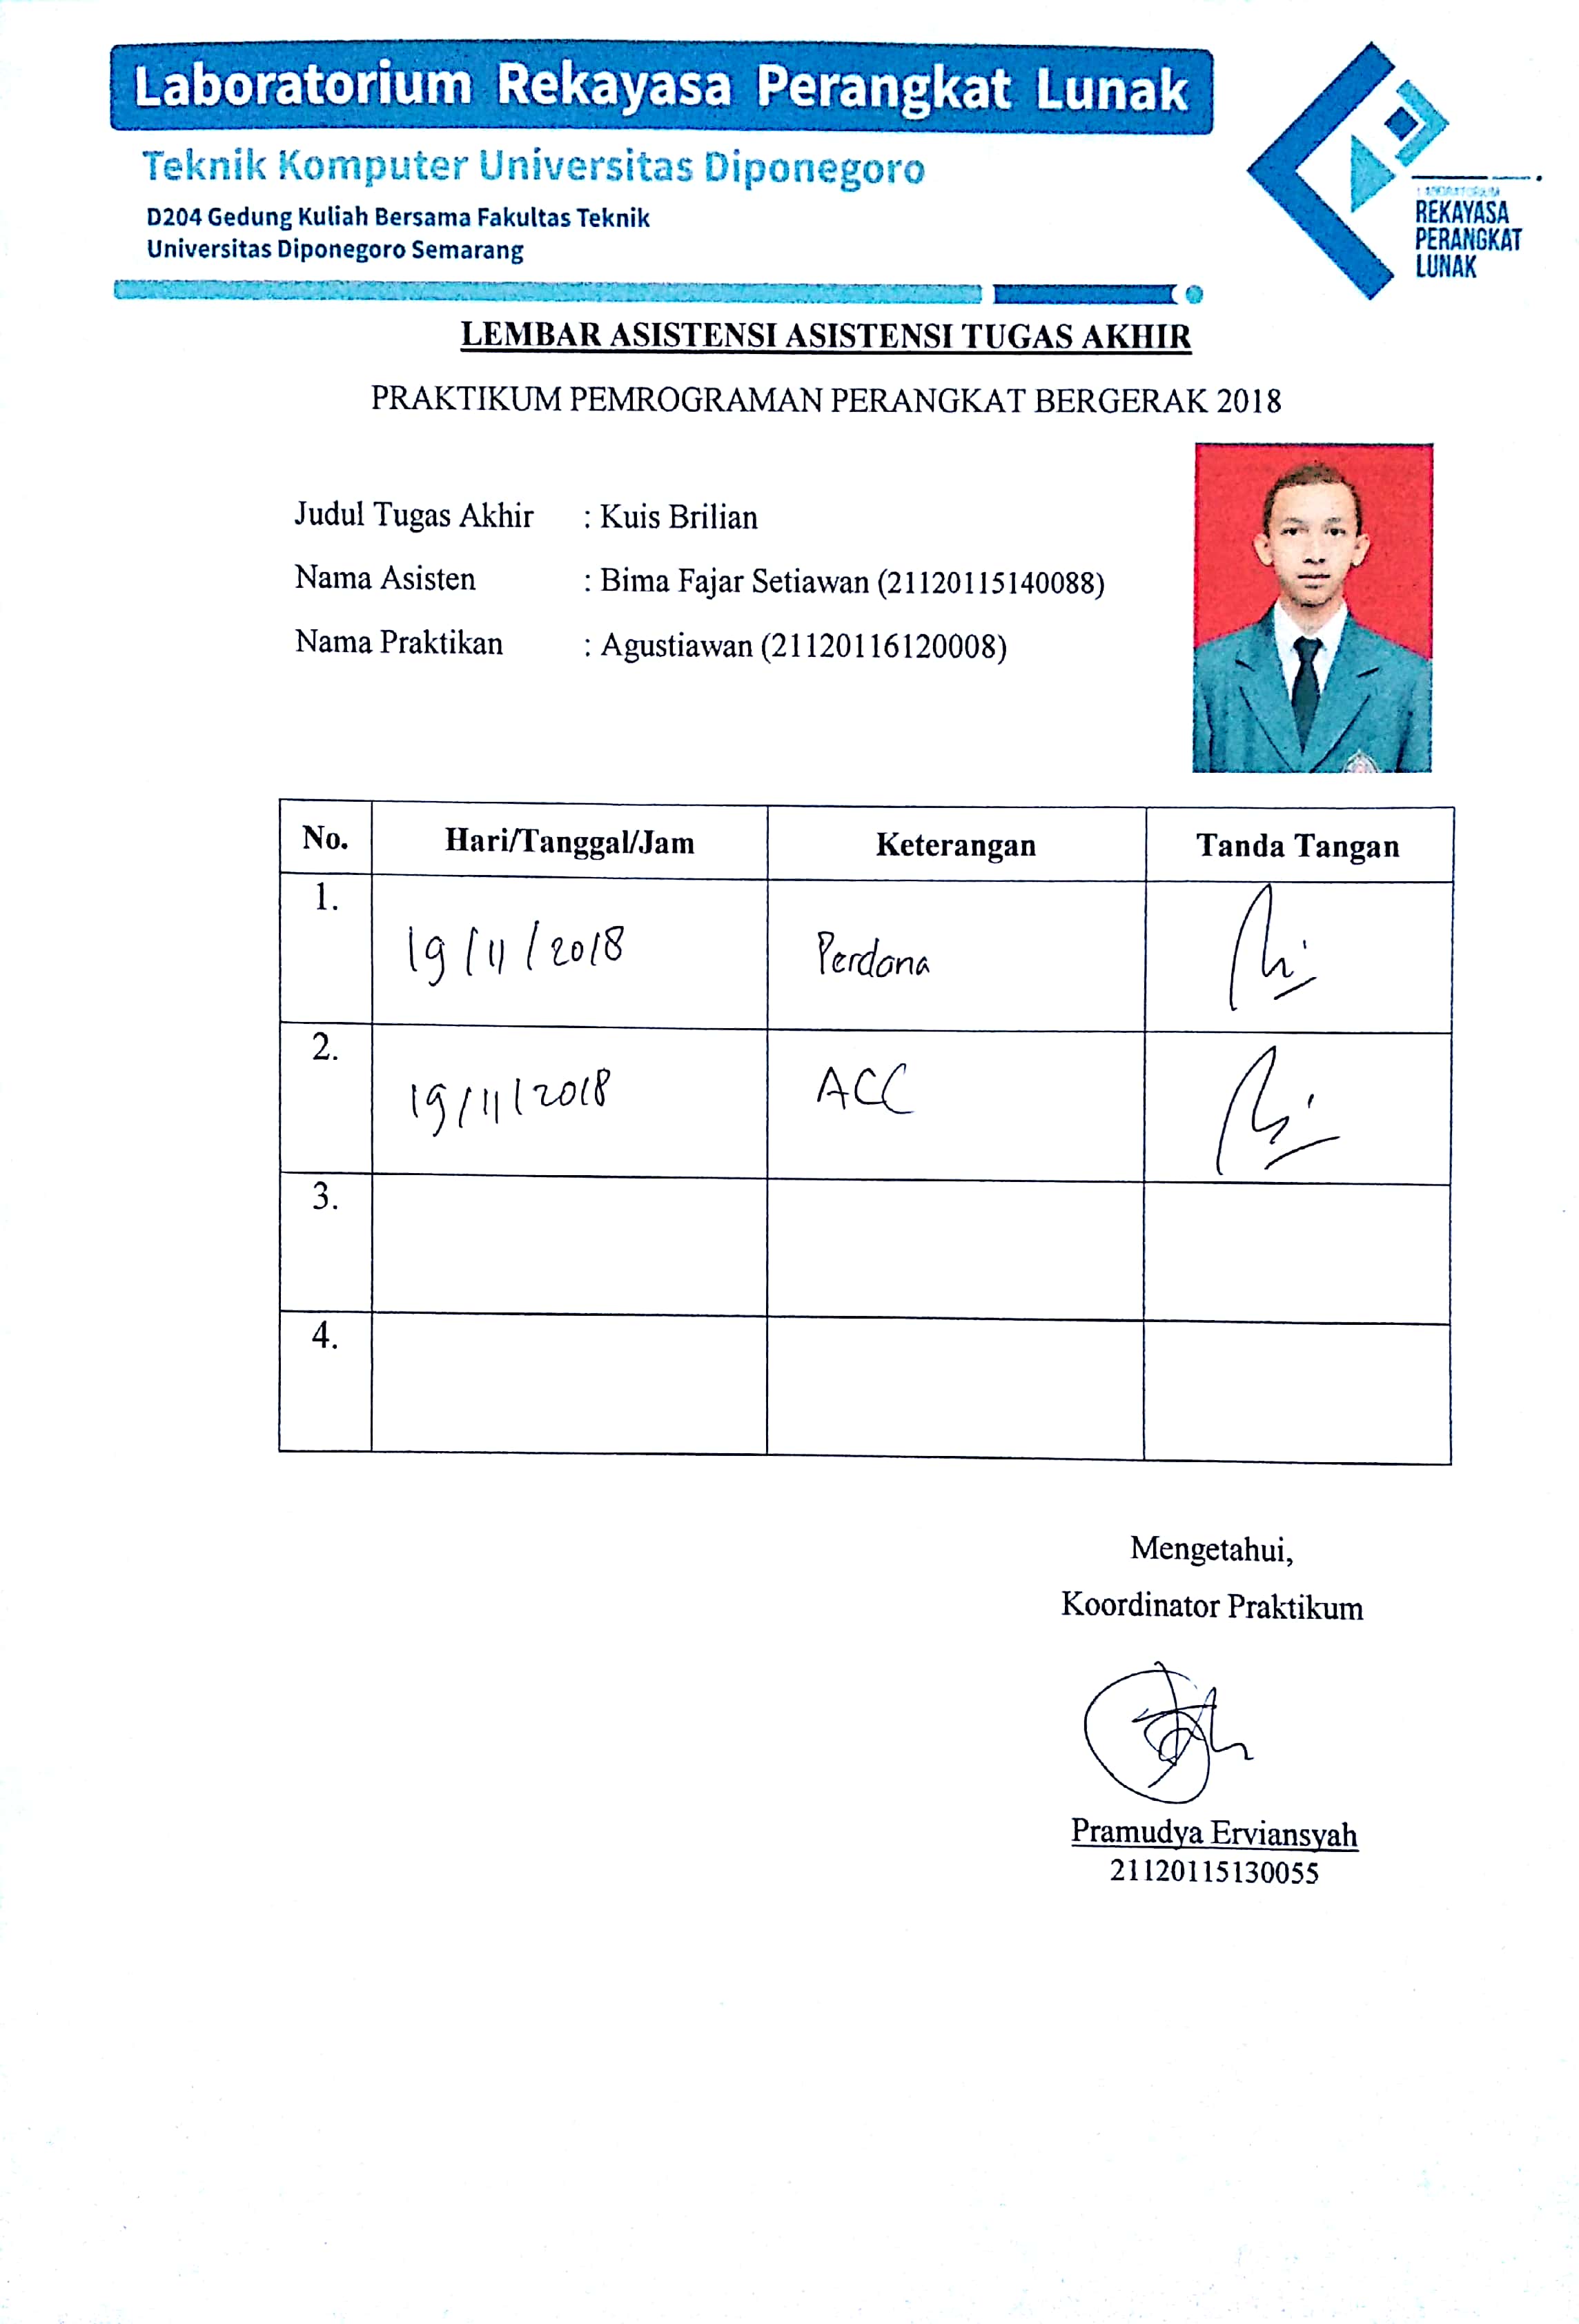 Laboratorium Rekayasa Perangkat Lunak
Teknik Komputer Universitas Diponegoro
D204 Gedung Kuliah Bersama Fakultas Teknik
Universitas Diponegoro Semarang
LABORATORIUM
REKAYASA
PERANGKAT
LUNAK
LEMBAR ASISTENSI ASISTENSI TUGAS AKHIR
PRAKTIKUM PEMROGRAMAN PERANGKAT BERGERAK 2018
Judul Tugas Akhir : Kuis Brilian
Nama Asisten : Bima Fajar Setiawan (21120115140088)
Nama Praktikan : Agustiawan (21120116120008)
No. Hari/Tanggal/Jam Keterangan Tanda Tangan
1. 19/11/2018 Perdana
2. 19/11/2018 ACC
3.
4.
Mengetahui,
Koordinator Praktikum
Pramudya Erviansyah
21120115130055